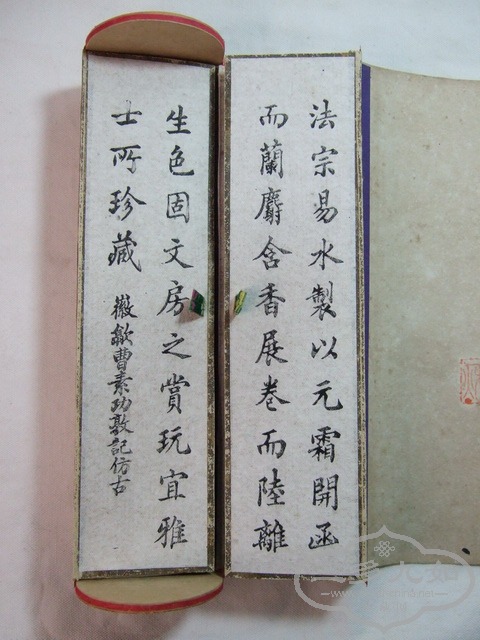 法宗易水製以元霜開函
而蘭麝含香展卷而陸離
生色固文房之賞玩宜雅
士所珍藏
徽歙曹素功敦記仿古